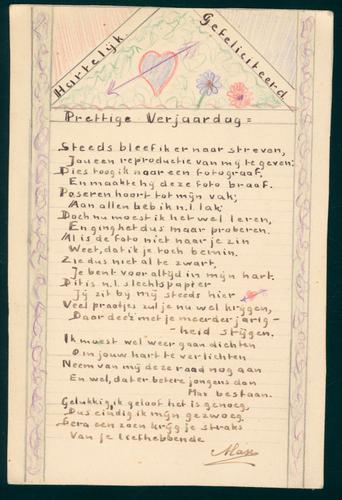 Hartelijk Gefeliciteerd
Prettige Verjaardag =
Steeds bleef ik er naar streven,
Jou een reproductie van mij te geven.
Dies toog ik naar een fotograaf.
En maakte hij deze foto braaf.
Poseren hoort tot mijn vak,
Aan allen heb ik n.l. lak,
Doch nu moest ik het wel leren,
En ging het dus maar proberen.
Al is de foto niet naar je zin
Weet, dat ik je toch bemin.
Zie dus niet al te zwart,
Je bent voor altijd in mijn hart.
Dit is n.l. slechts papier
Jij zit bij mij steeds hier
Veel praatjes zul je nu wel krijgen,
Daar deez' met je meerderjarig-
-heid stijgen.
Ik moest wel weer gaan dichten
Om jouw hart te verlichten
Neem van mij deze raad nog aan
En wel, dat er betere jongens dan
Max bestaan.
Gelukkig, ik geloof het is genoeg,
Dus eindig ik mijn gezwoeg.
een zoen krijg je straks
Van je liefhebbende
Max